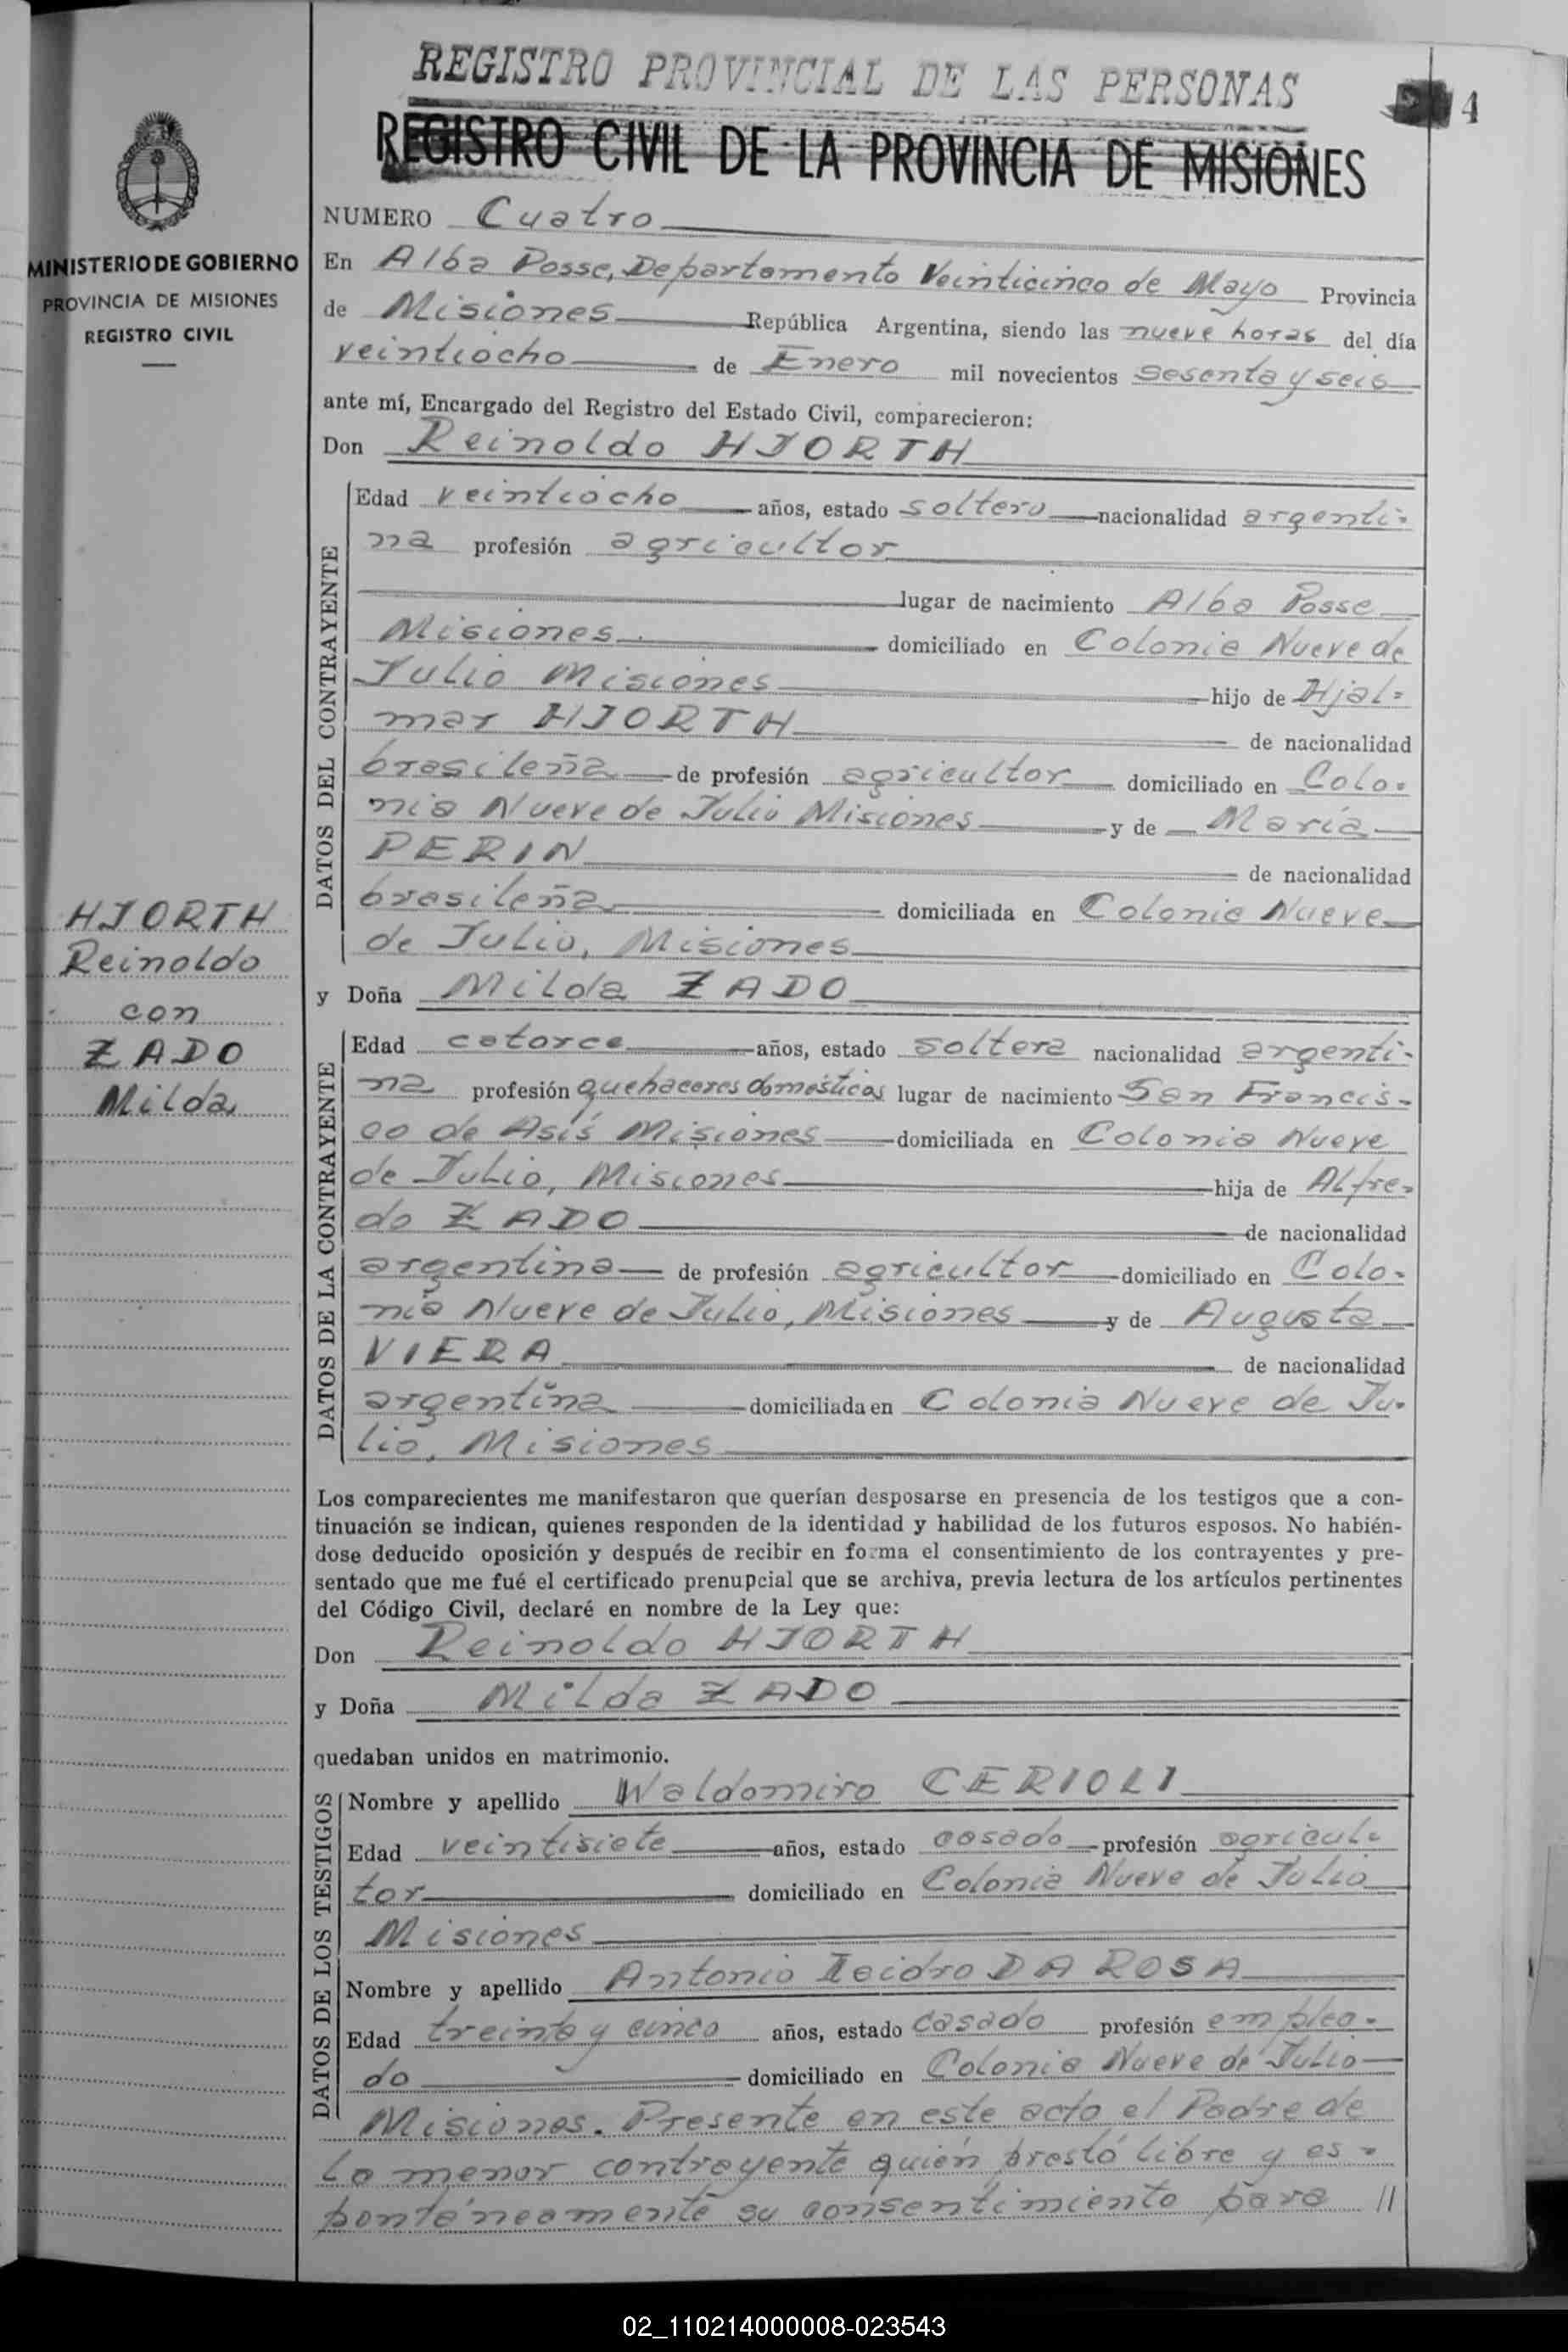 REGISTRO PROVINCIAL DE LAS PERSONAS
4
REGISTRO CIVIL DE LA PROVINCIA DE MISIONES
MINISTERIO DE GOBIERNO
PROVINCIA DE MISIONES
REGISTRO CIVIL
NUMERO Cuatro
En Alba Posse, Departamento Veinticinco de Mayo Provincia
de Misiones República Argentina, siendo las nueve horas del día
veintiocho de Enero mil novecientos sesenta y seis
ante mí, Encargado del Registro del Estado Civil, comparecieron:
Don Reinoldo HJORTH
DATOS DEL CONTRAYENTE
Edad veintiocho años, estado soltero nacionalidad argenti-
na profesión agricultor
lugar de nacimiento Alba Posse
Misiones domiciliado en Colonia Nueve de
Julio Misiones hijo de Hjal-
mar HJORTH de nacionalidad
brasileña de profesión agricultor domiciliado en Colo-
nia Nueve de Julio Misiones y de María
PERIN de nacionalidad
brasileña domiciliada en Colonia Nueve
de Julio, Misiones
HJORTH
Reinoldo
con
ZADO
Milda
y Doña Milda ZADO
DATOS DE LA CONTRAYENTE
Edad catorce años, estado soltera nacionalidad argenti-
na profesión quehaceres domésticos lugar de nacimiento San Francis-
co de Asís Misiones domiciliada en Colonia Nueve
de Julio, Misiones hija de Alfre-
do ZADO de nacionalidad
argentina de profesión agricultor domiciliado en Colo-
nia Nueve de Julio, Misiones y de Augusta
VIERA de nacionalidad
argentina domiciliada en Colonia Nueve de Ju-
lio, Misiones
Los comparecientes me manifestaron que querían desposarse en presencia de los testigos que a con-
tinuación se indican, quienes responden de la identidad y habilidad de los futuros esposos. No habién-
dose deducido oposición y después de recibir en forma el consentimiento de los contrayentes y pre-
sentado que me fué el certificado prenupcial que se archiva, previa lectura de los artículos pertinentes
del Código Civil, declaré en nombre de la Ley que:
Don Reinoldo HJORTH
y Doña Milda ZADO
quedaban unidos en matrimonio.
DATOS DE LOS TESTIGOS
Nombre y apellido Waldomiro CERIOLI
Edad veintisiete años, estado casado profesión agricul-
tor domiciliado en Colonia Nueve de Julio
Misiones
Nombre y apellido Antonio Isidro DA ROSA
Edad treinta y cinco años, estado casado profesión emplea-
do domiciliado en Colonia Nueve de Julio
Misiones. Presente en este acto el Padre de
la menor contrayente quién prestó libre y es-
pontáneamente su consentimiento para //
02_110214000008-023543